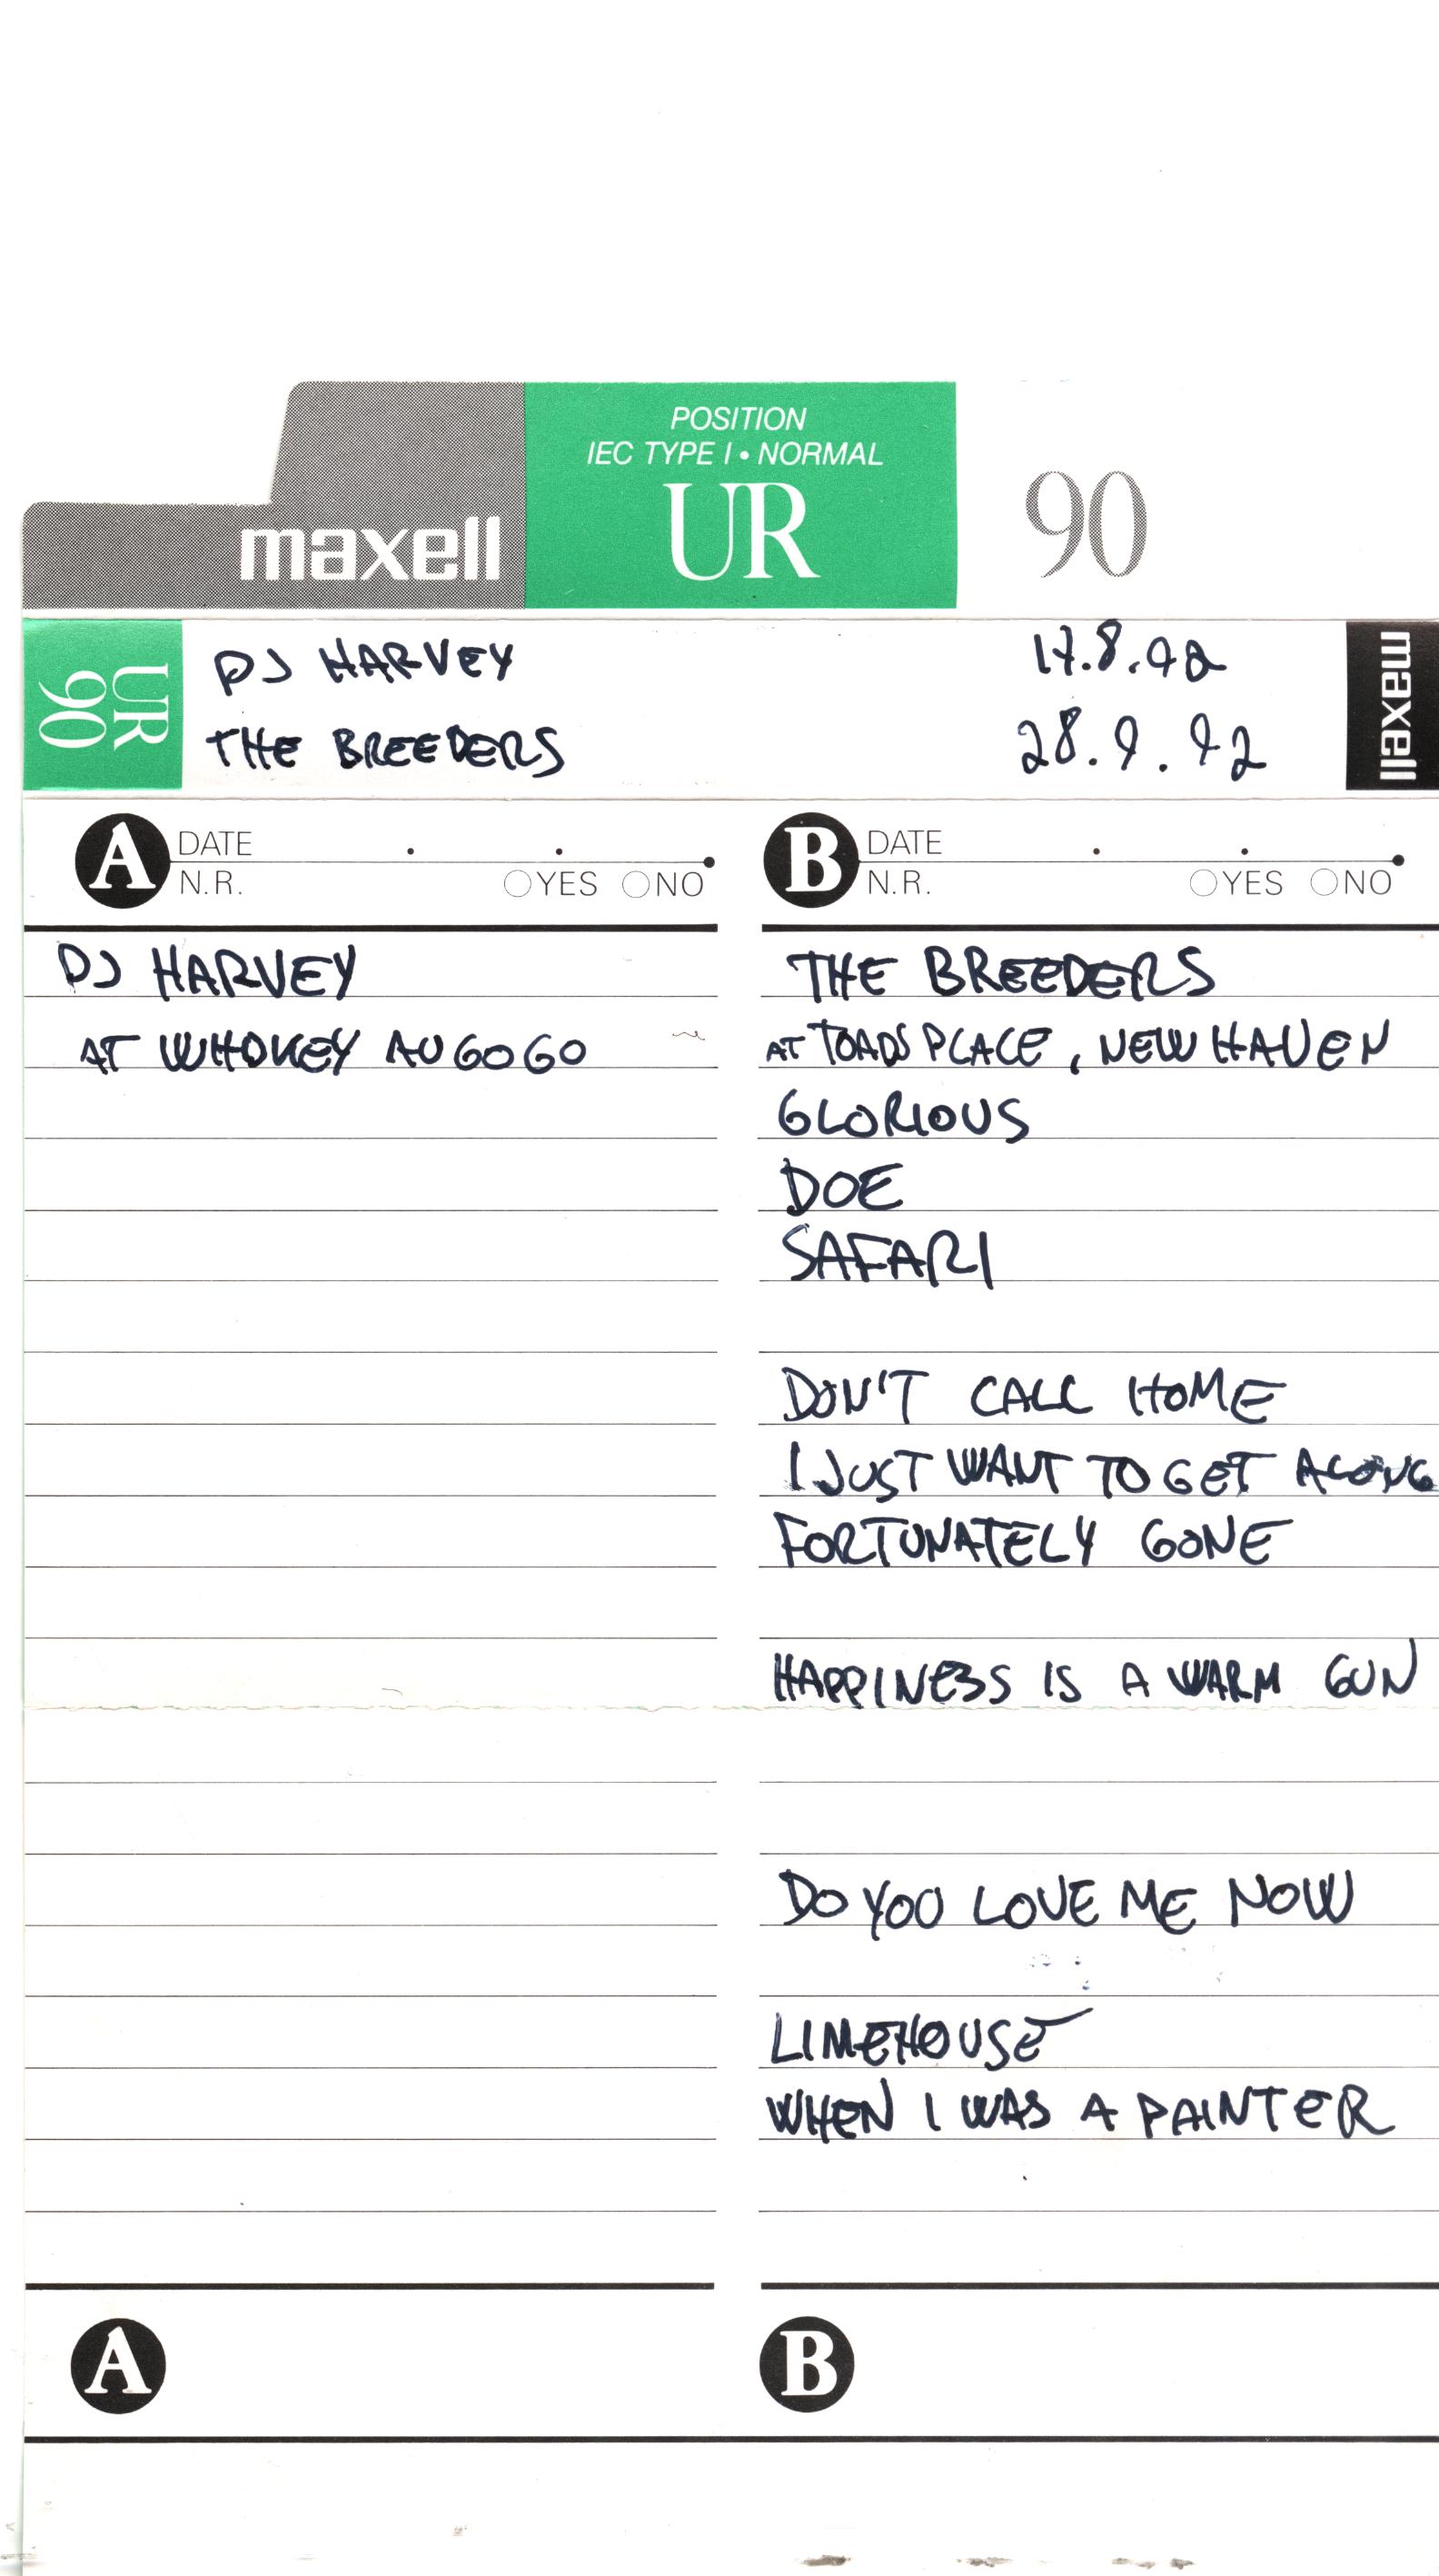 POSITION
IEC TYPE I • NORMAL
maxell
UR
90
UR
90
DJ HARVEY
17.8.92
maxell
THE BREEDERS
28.9.92
A DATE . .
N.R. YES NO
B DATE . .
N.R. YES NO
DJ HARVEY
AT WHOKEY AU GO GO
THE BREEDERS
AT TOADS PLACE, NEW HAVEN
GLORIOUS
DOE
SAFARI
DON'T CALL HOME
I JUST WANT TO GET ALONG
FORTUNATELY GONE
HAPPINESS IS A WARM GUN
DO YOU LOVE ME NOW
LIMEHOUSE
WHEN I WAS A PAINTER
A
B